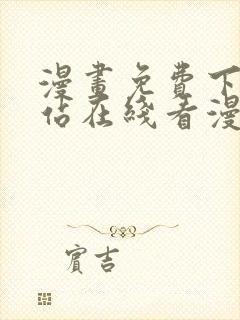 漫畫免費下
佔在綫看漫
賓吉